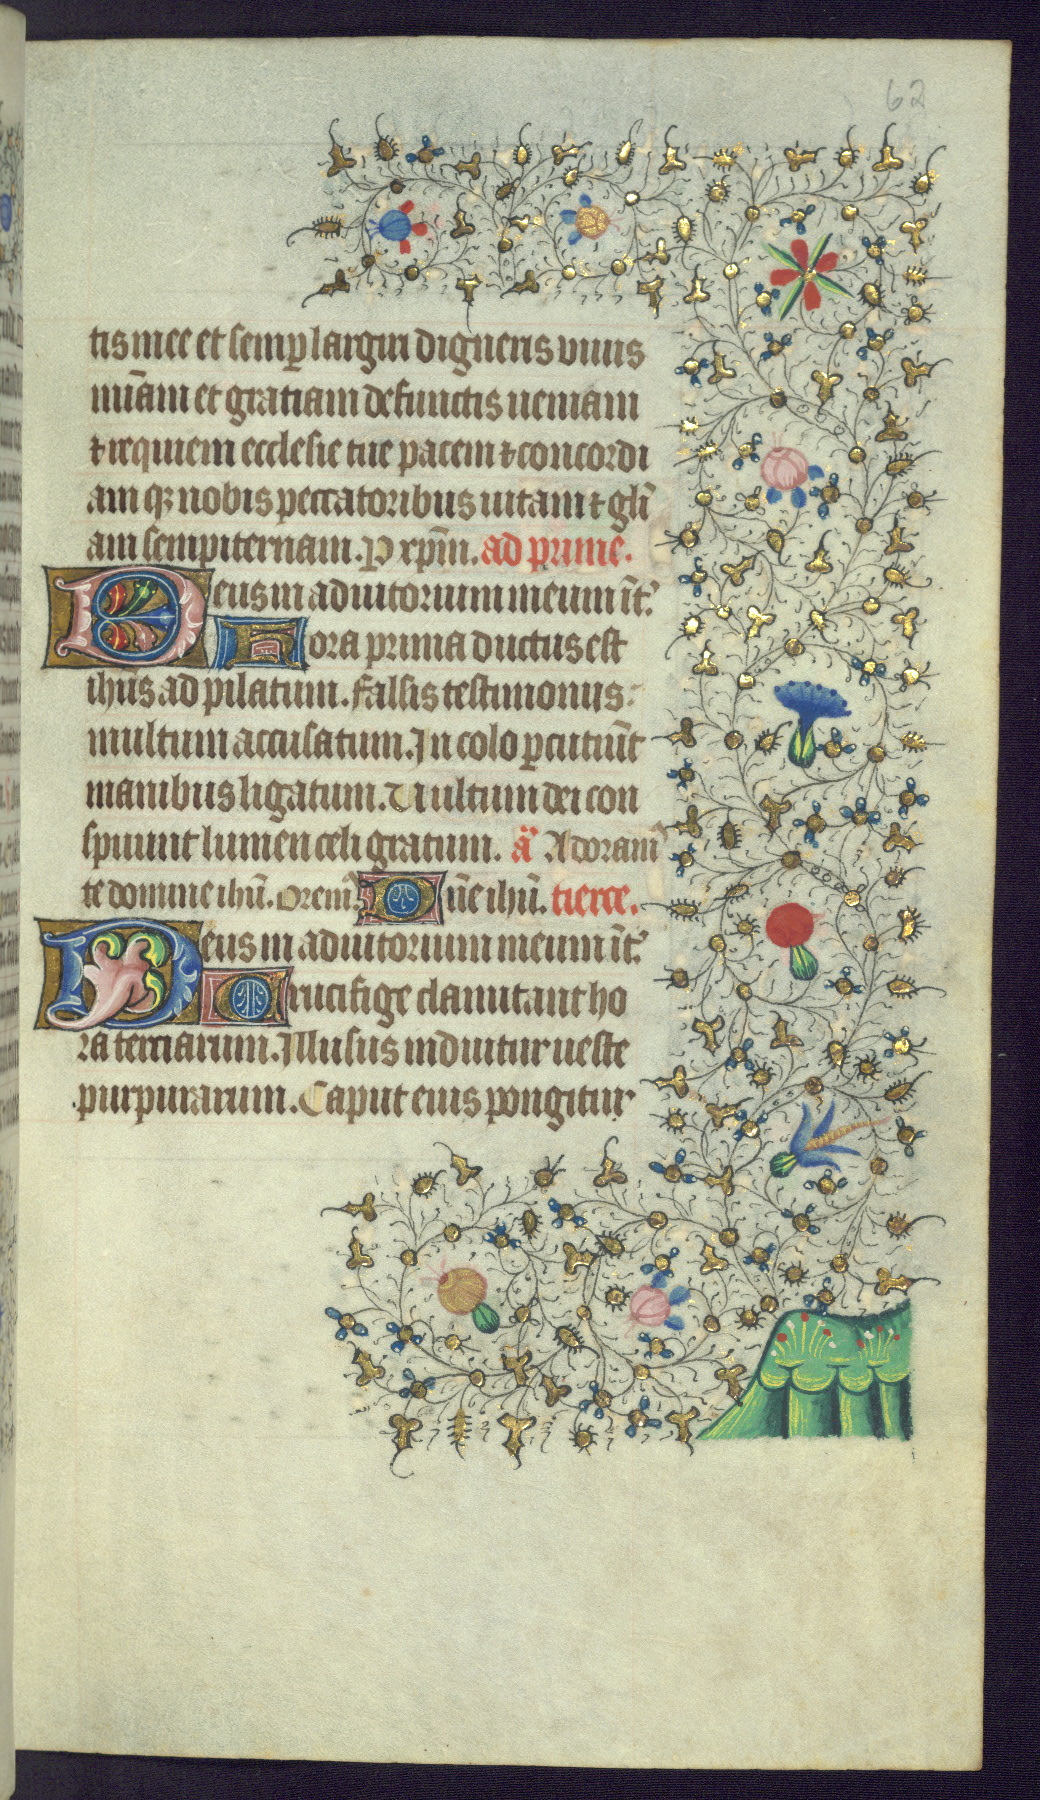 62
tis mee et semp̱ largiri digneris viuis
mīam et gratiam defunctis ueniam
⁊ requiem ecclesie tue pacem ⁊ concordi
am qꝫ nobis peccatoribus uitam ⁊ glī
am sempiternam. P xp̄m. ad prime.
Deus in adiutorium meum īt̄.
Hora prima ductus est
ihūs ad pilatum. Falsis testimoniis
multum accusatum. In colo ꝑcutiūt
manibus ligatum. Uultum dei con
spuunt lumen celi gratum. ā Adoram
te domine ihū. Orem Dn̄e ihū. tierce.
Deus in adiutorium meum īt̄.
Crucifige clamitant ho
ra terciarum. Illusus induitur ueste
purpurarum. Caput eius pongitur